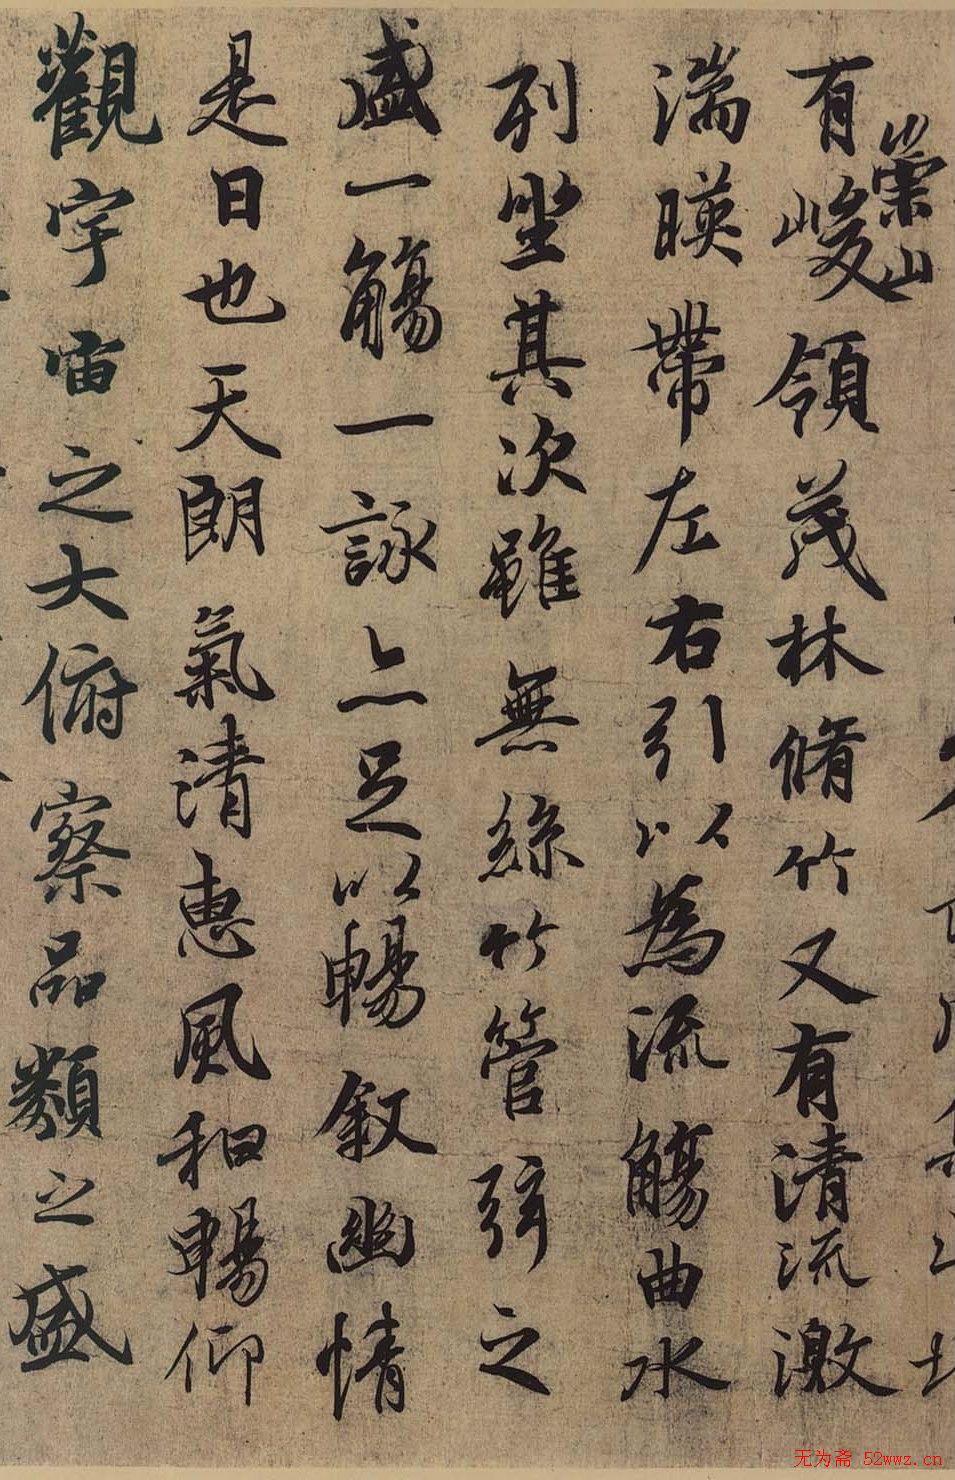 崇山
有峻領茂林脩竹又有清流激
湍暎帶左右引以為流觴曲水
列坐其次雖無絲竹管弦之
盛一觴一詠亦足以暢敘幽情
是日也天朗氣清惠風和暢仰
觀宇宙之大俯察品類之盛
无为斋 52wwz.cn